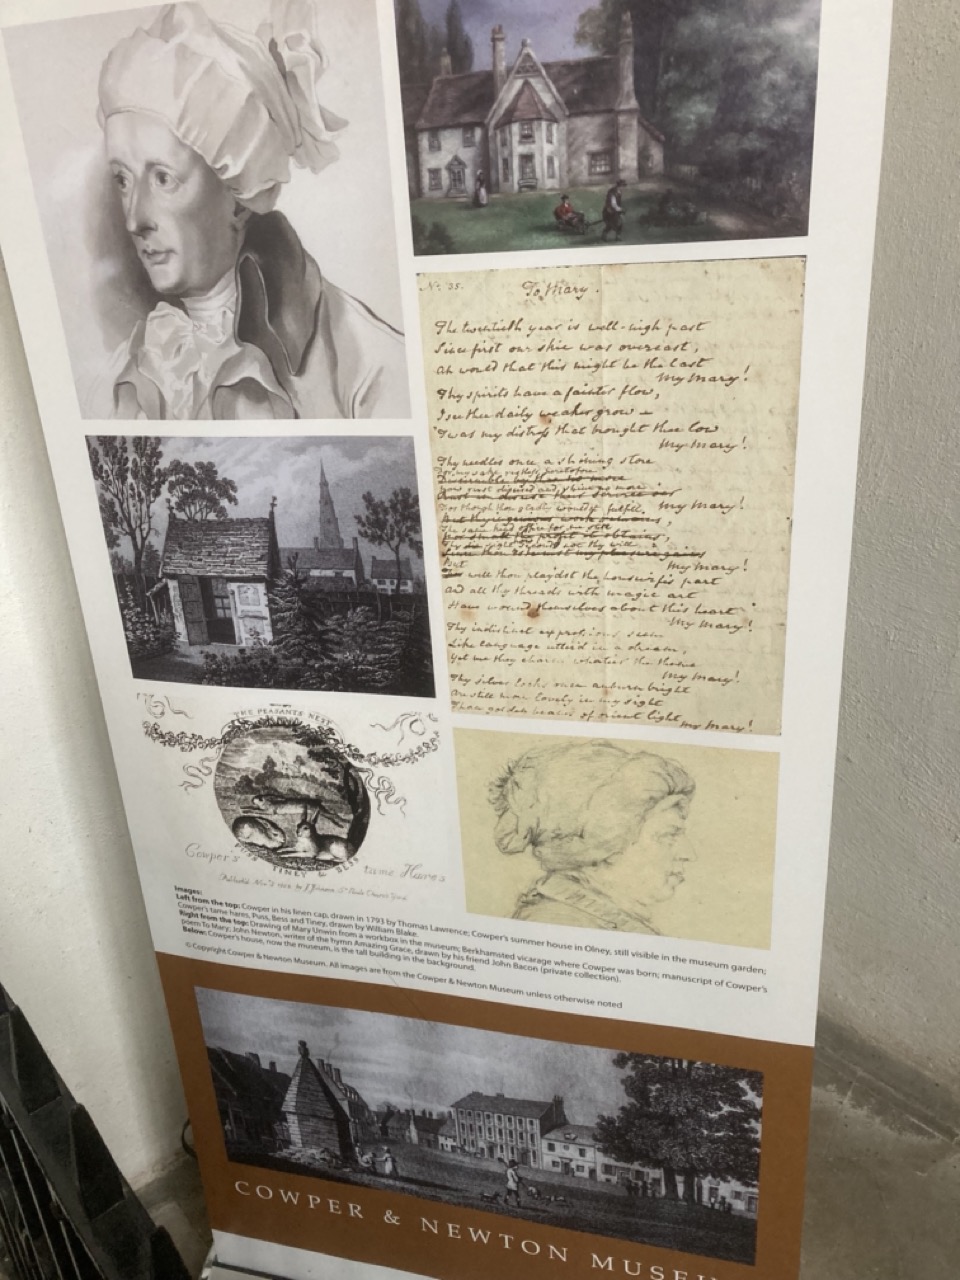 No. 35.
To Mary.
The twentieth year is well-nigh past
Since first our skie was overcast,
Ah would that this might be the last
My Mary!
Thy spirits have a fainter flow,
I see thee daily weaker grow
'Twas my distress that brought thee low
My Mary!
Thy needles once a shining store
For my sake restless heretofore
Now rust disused and shine no more
My Mary!
For though thou gladly wouldst fulfill
The same kind office for me still
Thy sight now seconds not thy will
My Mary!
But well thou playdst the housewife's part
And all thy threads with magic art
Have wound themselves about this heart
My Mary!
Thy indistinct expressions seem
Like language utter'd in a dream,
Yet me they charm whate'er the theme
My Mary!
Thy silver locks once auburn bright
Are still more lovely in my sight
Than golden beams of orient light
My Mary!
THE PEASANTS NEST
Cowper's tame Hares
PUSS TINEY & BESS
Images:
Left from the top: Cowper in his linen cap, drawn in 1793 by Thomas Lawrence; Cowper's summer house in Olney, still visible in the museum garden;
Cowper's tame hares, Puss, Bess and Tiney, drawn by William Blake.
Right from the top: Drawing of Mary Unwin from a workbox in the museum; Berkhamsted vicarage where Cowper was born; manuscript of Cowper's
poem To Mary; John Newton, writer of the hymn Amazing Grace, drawn by his friend John Bacon (private collection).
Below: Cowper's house, now the museum, is the tall building in the background.
© Copyright Cowper & Newton Museum. All images are from the Cowper & Newton Museum unless otherwise noted
COWPER & NEWTON MUSEU